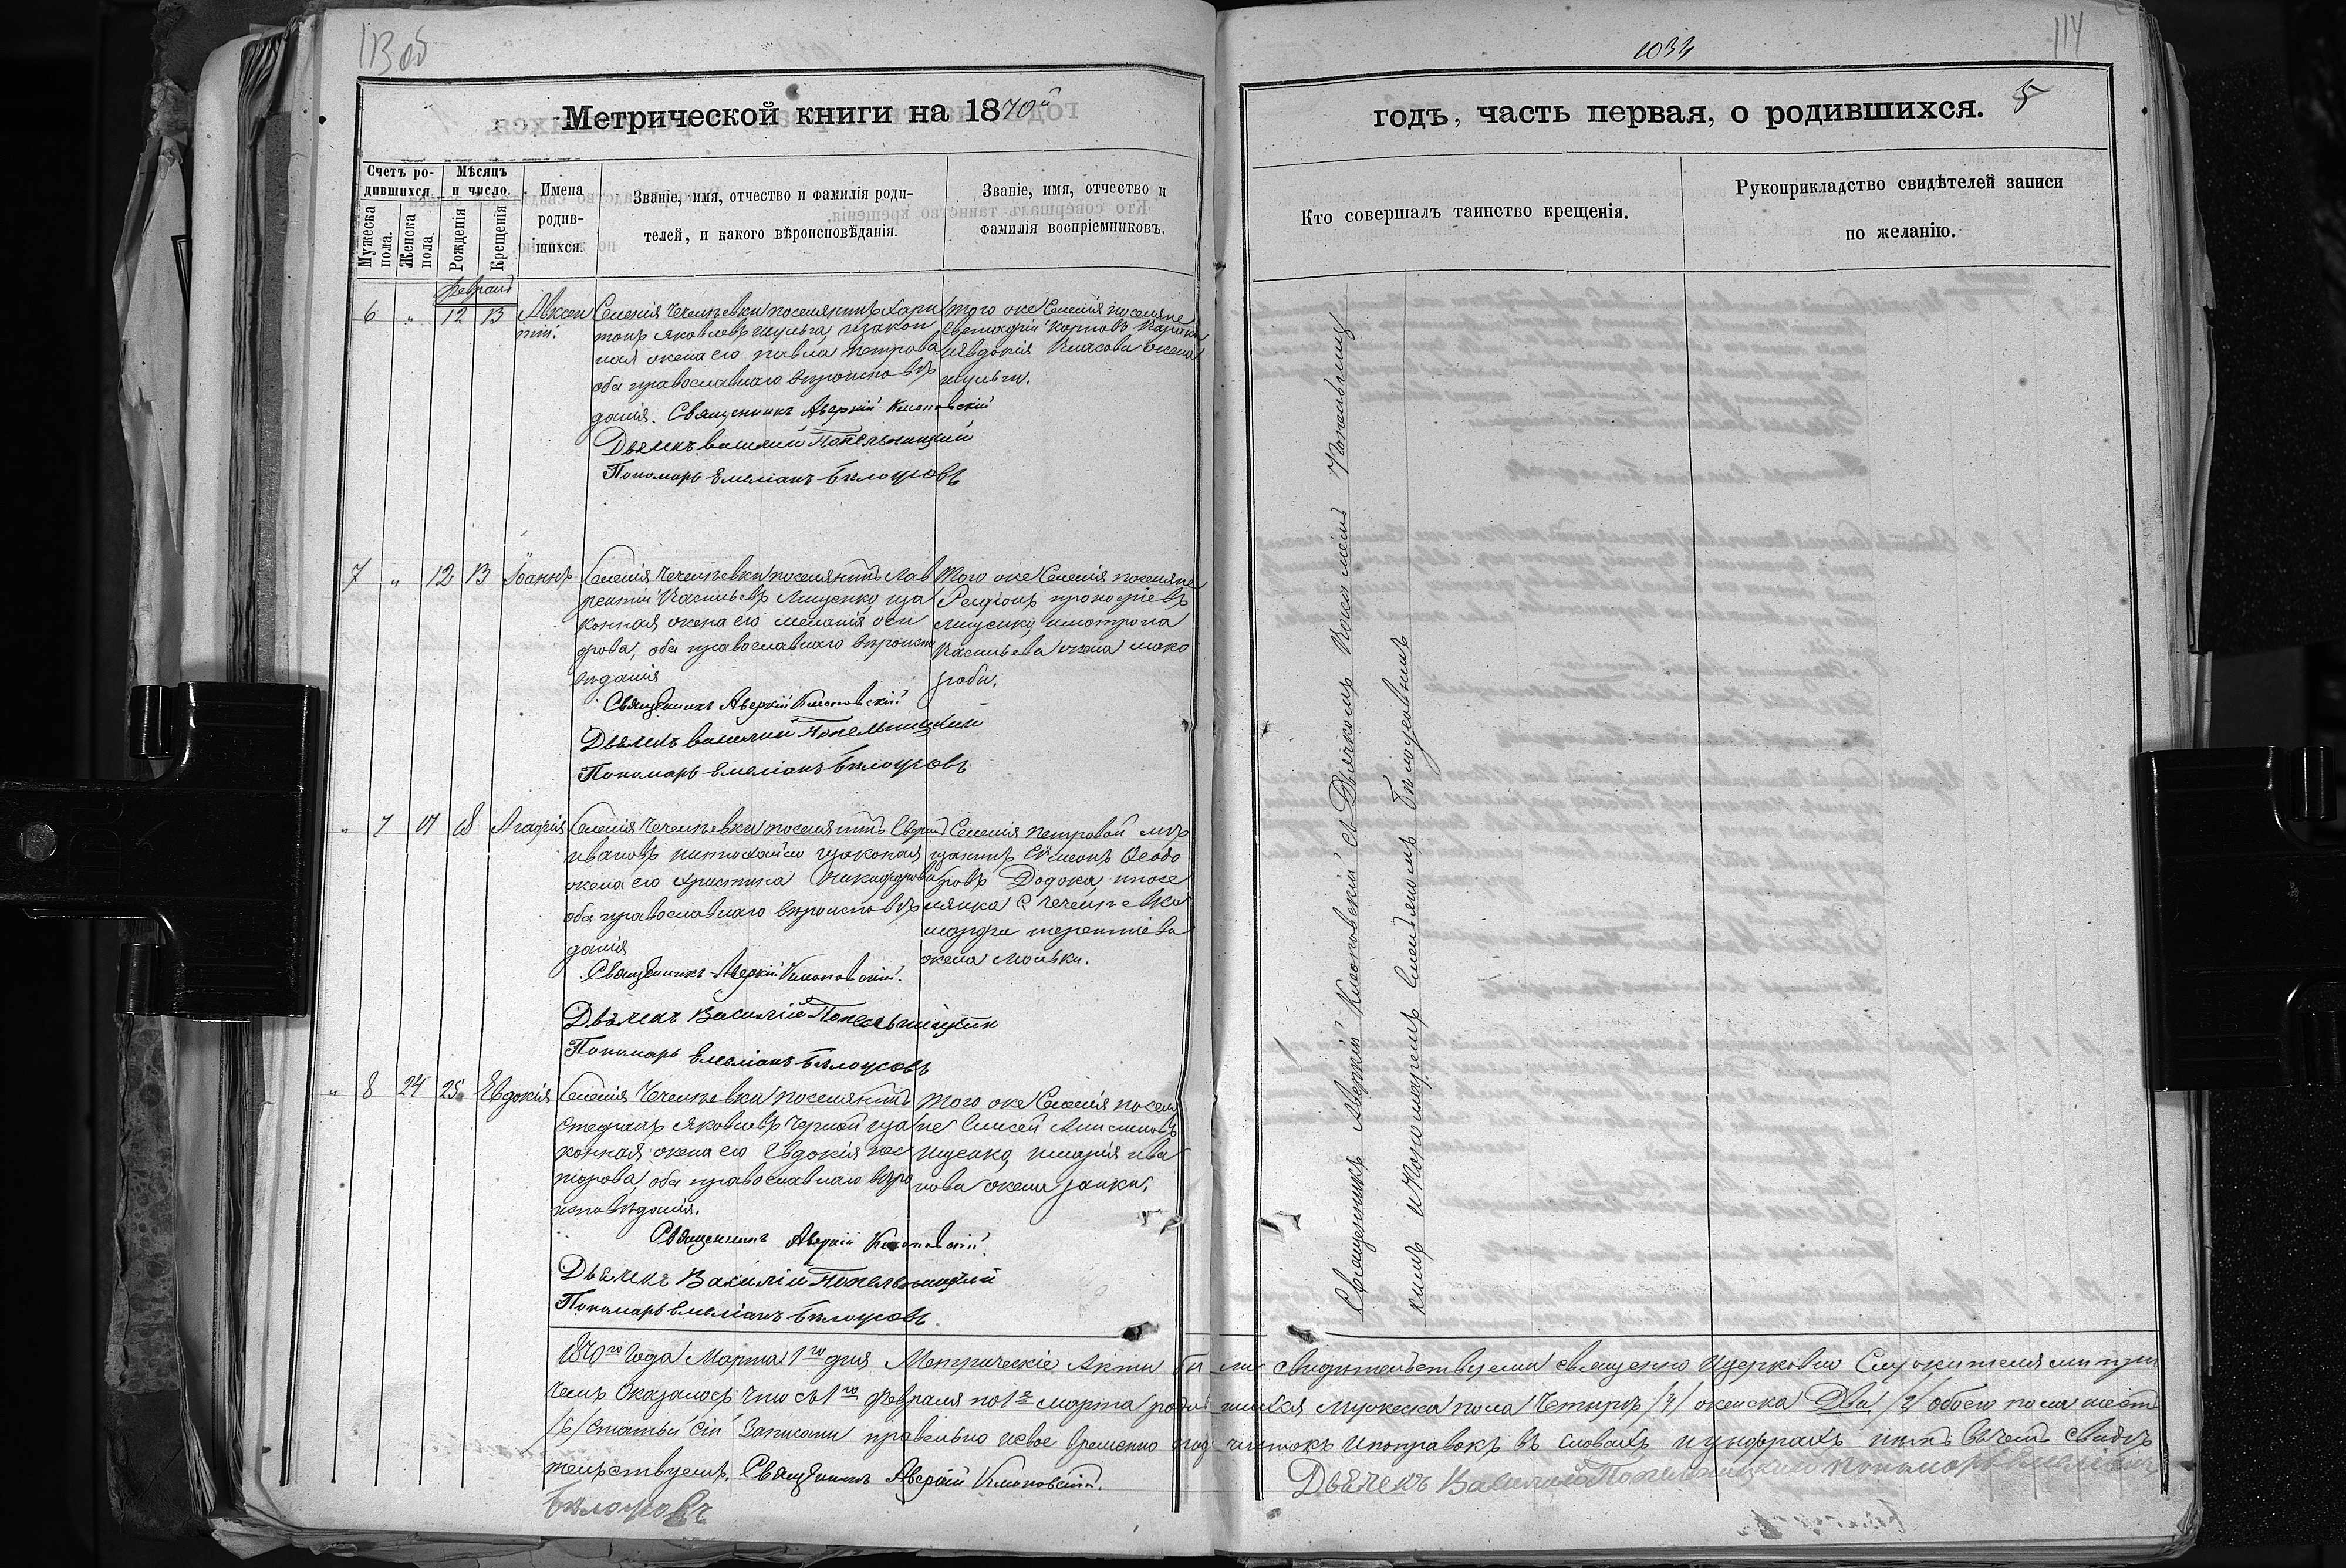 113 об
1034
114
Метрической книги на 1870й
годъ, часть первая, о родившихся.
5
Счетъ ро-
дившихся.
Мужеска
пола.
Женска
пола.
Мѣсяцъ
и число.
Рожденія
Крещенія
Имена
родив-
шихся.
Званіе, имя, отчество и фамилія роди-
телей, и какого вѣроисповѣданія.
Званіе, имя, отчество и
фамилія воспріемниковъ.
Кто совершалъ таинство крещенія.
Рукоприкладство свидѣтелей записи
по желанію.
Февраль
6 " 12 13 Авксен
тій.
Селенія Чечелѣевки поселянинъ Хари
тонъ Яковлевъ Шульга, изакон
ная жена его Павла Петрова
оба православнаго вѣроисповѣ
данія. Священникъ Аверкій Клоповскій
Дьячекъ Василій Попельницкий
Пономарь Емеліанъ Бѣлоусовъ
того же Селенія поселяне
Карповъ
иЕвдокія Власова жена
Шульги.
7 " 12 13 Іоаннъ
Селенія Чечелѣевки поселянинъ Лав
рентій Васильевъ Лищенко, иза
конная жена его Меланія Оси
оба православнаго вѣроиспо
вѣданія
Священникъ Аверкій Клоповскій
Дьячекъ Василий Попельницкий
Пономарь Емеліанъ Бѣлоусовъ
Того же Селенія поселяне
Родіонъ Прокофіевъ
Лищенко, иматрона
Васильева жена Мако
" 7 17 18 Агафія
Селенія Чечелѣевки поселянинъ
Ивановъ изаконная
жена его Христина Никифорова
оба православнаго вѣроисповѣ
данія
Священникъ Аверкій Клоповскій.
Дьячекъ Василій Попельницкий
Пономарь Емеліанъ Бѣлоусовъ
Селенія Петровой мѣ
щанинъ Сѵмеонъ Ѳеодо
ровъ Додока, ипосе
лянка С. Чечелѣевки
Марфа Терентіева
жена
" 8 24 25 Евдокія
Селенія Чечелѣевки поселянинъ
Стефанъ Яковлевъ Черной иза
конная жена его Евдокія Нес
торова, оба православнаго вѣро
исповѣданія.
Священникъ Аверкій Клоповскій.
Дьячекъ Василій Попельницкий
Пономарь Емеліанъ Бѣлоусовъ
того же Селенія поселя
не Елисей Анисимовъ
Ищенко, имарія Ива
нова жена Заики.
Священникъ Аверкій Клоповскій съ Дьячкомъ Василіемъ Попельниц
кимъ и Пономаремъ Емеліаномъ Бѣлоусовымъ
1870го Года Марта 1го дня Метрическіе Акты были свидѣтельствуемы священно Ицерковно Служителями при
чемъ Оказалось что съ 1го Февраля по 1е марта родившихся мужеска пола Четыре /4/ женска Два /2/ обоего пола шесть
/6/ Статьи Сіи Записаны правильно исвое временно подчистокъ ипоправокъ въ словахъ ицыфрахъ нѣтъ въчемъ Свидѣ
тельствуемъ, Священникъ Аверкій Клоповскій. Дьячекъ Василий Попельницкий Пономарь Емеліанъ
Бѣлоусовъ